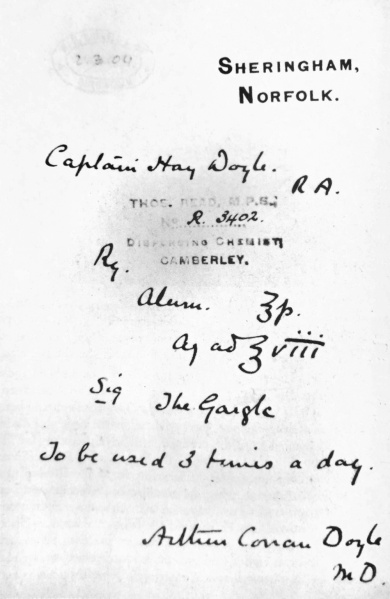 2.3.04
SHERINGHAM,
NORFOLK.
Captain Hay Doyle.
R A.
THOS. READ, M.P.S.,
No R. 3402.
DISPENSING CHEMIST,
CAMBERLEY.
Rx.
Alum. ʒp.
Aq ad ℥ viii
Sig The Gargle
To be used 3 times a day.
Arthur Conan Doyle
M D.